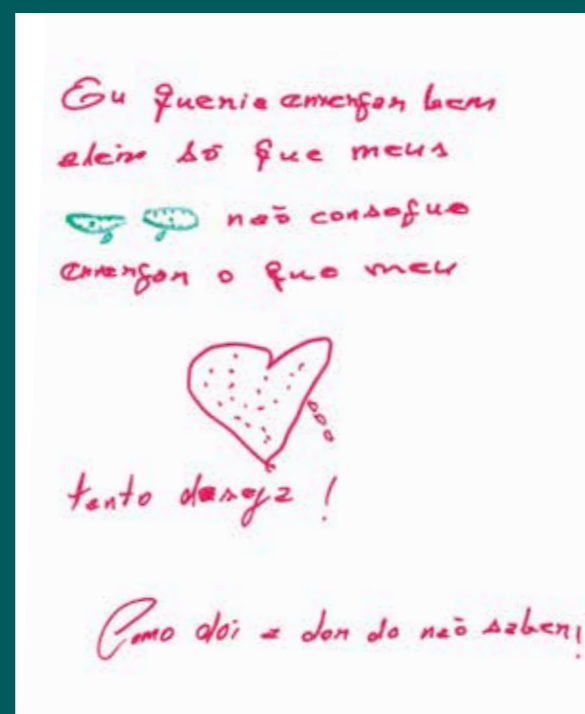 Eu queria enxergar bem
além só que meus
não consegue
enxergar o que meu
tanto deseja!
Como doi a dor do não saber!